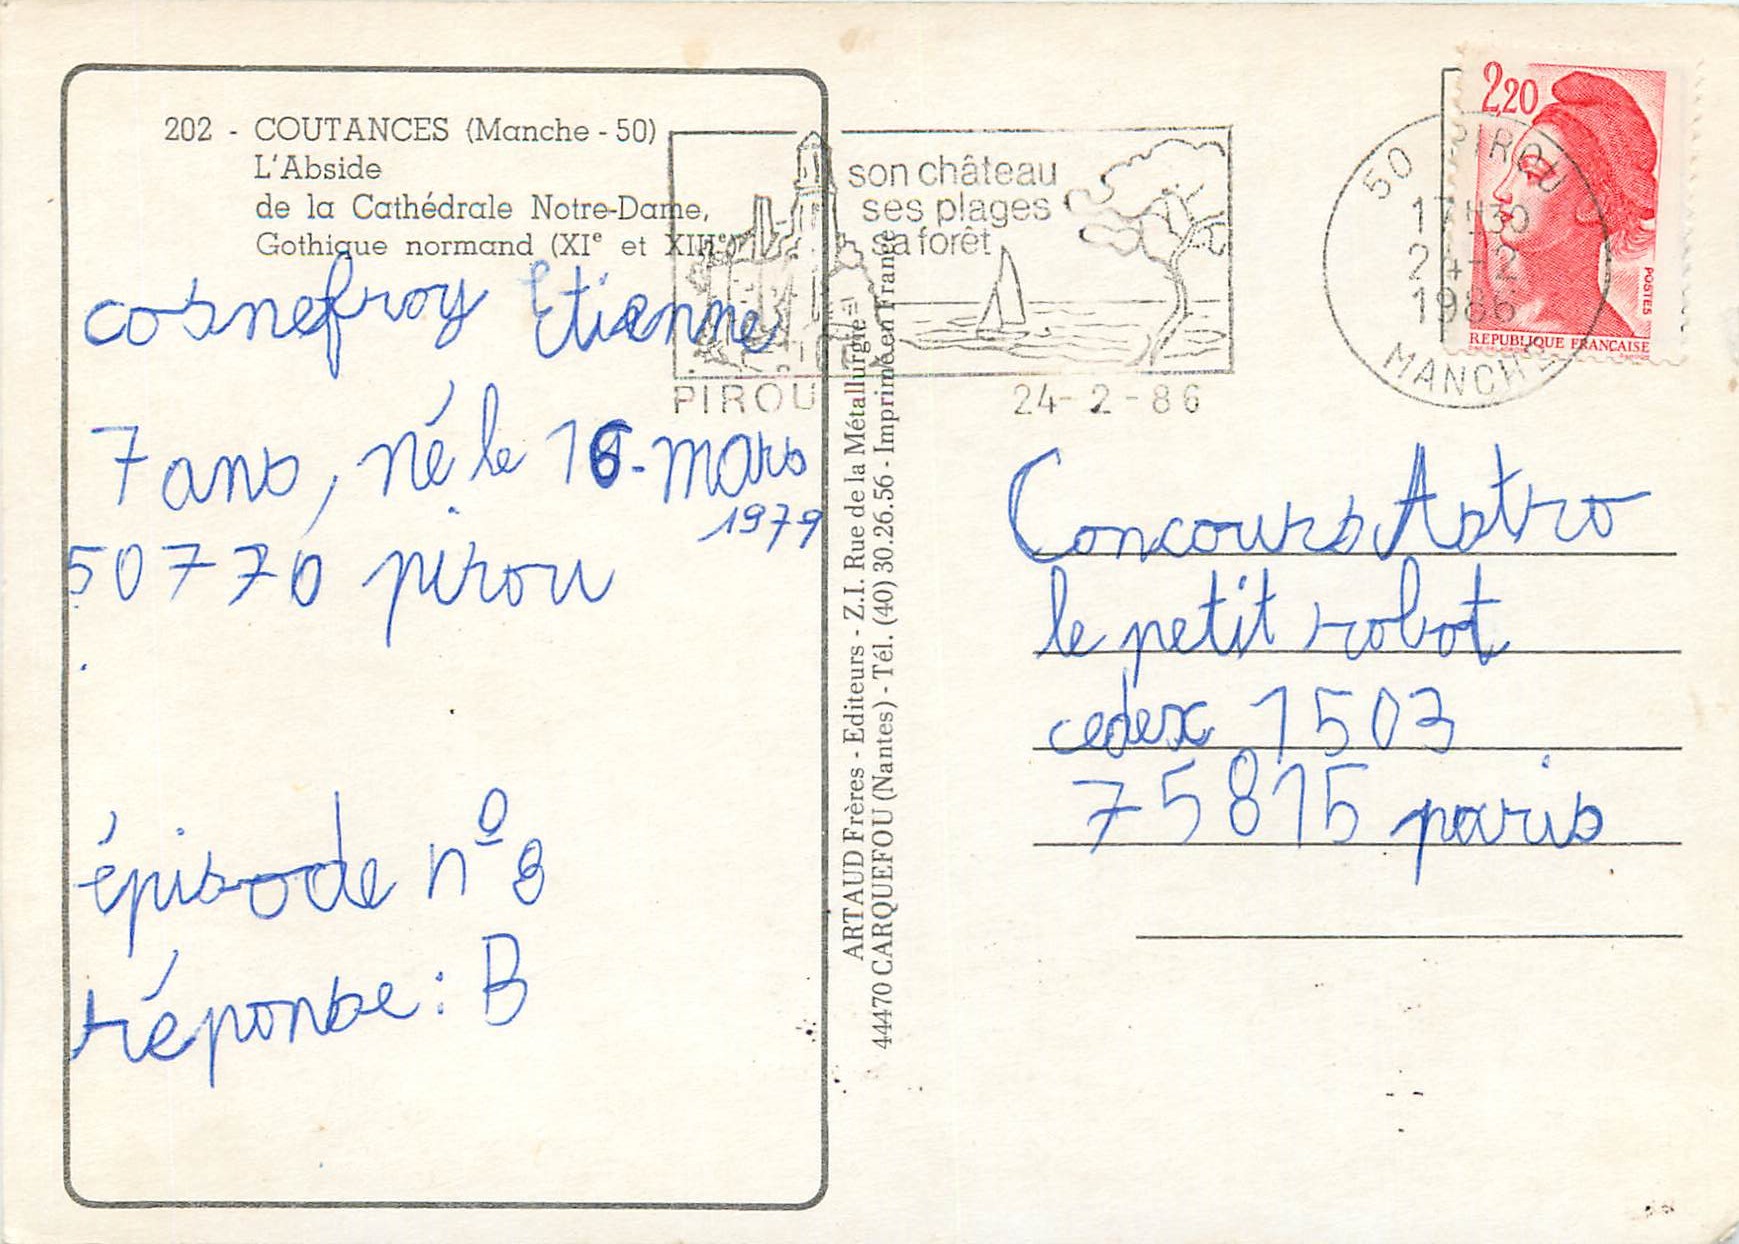 202 - COUTANCES (Manche - 50)
L'Abside
de la Cathédrale Notre-Dame,
Gothique normand (XIe et XIIIe)
cosnefroy Etienne
7 ans, né le 16 mars
1979
50770 pirou
épisode nº 8
réponse : B
son château
ses plages
sa forêt
PIROU 24-2-86
50 PIROU
17H30
24-2
1986
MANCHE
2,20
POSTES
REPUBLIQUE FRANÇAISE
ARTAUD Frères - Editeurs - Z.I. Rue de la Métallurgie
44470 CARQUEFOU (Nantes) - Tél. (40) 30.26.56 - Imprimé en France
Concours Astro
le petit robot
cedex 1503
75815 paris